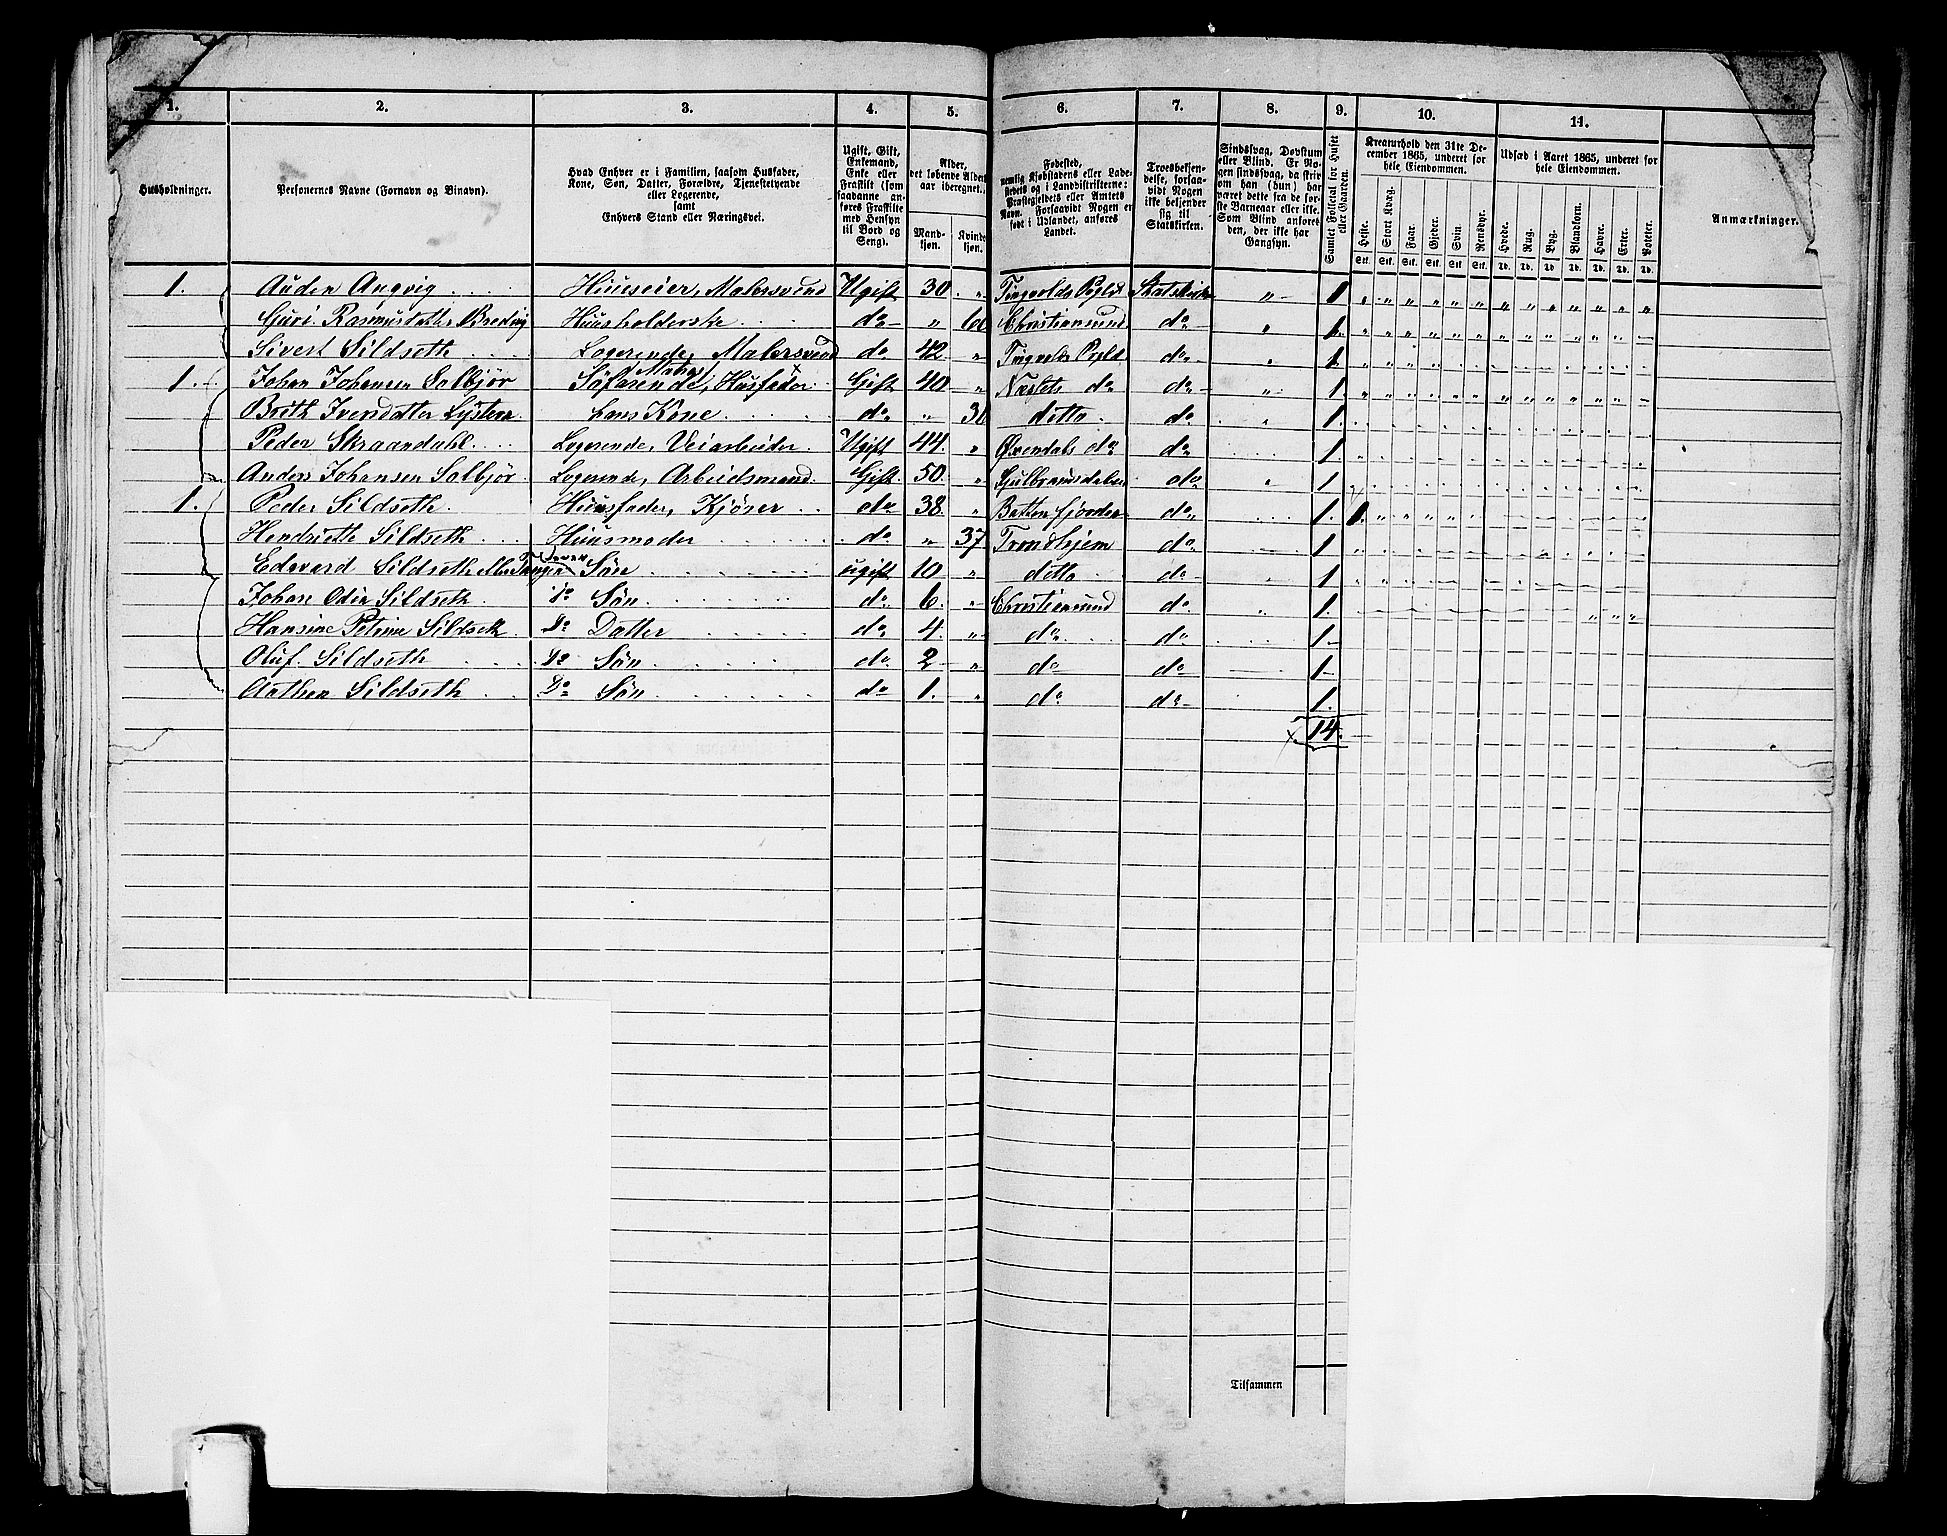 1. 2. 3. 4. 5. 6. 7. 8. 9. 10. 11.
Husholdninger.
Personernes Navne (Fornavn og Binavn).
Hvad Enhver er i Familien, saasom Husfader,
Kone, Søn, Datter, Forældre, Tjenestetyende
eller Logerende,
samt
Enhvers Stand eller Næringsvei.
Ugift, Gift,
Enkemand,
Enke eller
Fraskilt (som
saadanne an-
føres Fraskilte
med Hensyn
til Bord og
Seng).
Alder,
det løbende Alders-
aar iberegnet.
Mand-
kjøn.
Kvinde-
kjøn.
Fødested,
nemlig Kjøbstadens eller Lade-
stedets og i Landdistrikterne:
Præstegjeldets eller Amtets
Navn. Forsaavidt Nogen er
født i Udlandet, anføres
Landet.
Troesbekjen-
delse, forsaa-
vidt Nogen
ikke bekjender
sig til
Statskirken.
Sindssvag, Døvstum
eller Blind. Er No-
gen sindssvag, da skriv
om han (hun) har
været dette fra de før-
ste Barneaar eller ikke.
Som Blind anføres
den, der ikke har
Gangsyn.
Samlet Folketal for Huset
eller Gaarden.
Kreaturhold den 31te De-
cember 1865, underet for
hele Eiendommen.
Heste. Stort Kvæg. Faar. Gjeder. Svin. Rensdyr.
Stk. Stk. Stk. Stk. Stk. Stk.
Udsæd i Aaret 1865, underet for
hele Eiendommen.
Hvede. Rug. Byg. Blandkorn. Havre. Erter. Poteter.
Td. Td. Td. Td. Td. Td. Td.
Anmærkninger.
1. Auden Angvig Huuseier, Malersvend Ugift 30 " Tingvolds Pgld Statskirke " 1
Guri Rasmusdatter Bredvig Huusholderske do " 60 Christiansund do " 1.
Sivert Sildseth Logerende, Malersvend do 42 " Tingvolds Pgld do " 1
1. Johan Johansen Solbjør Søfarende, Matros Husfader Gift 40 " Nessets do do " 1.
Brith Iversdatter hans Kone do " ditto do " 1.
Peder Skraandahl Logerende, Veiarbeider Ugift 44 " Øxendals do do 1.
Anders Johansen Solbjør Logerende, Arbeidsmand Gift 50. " Gulbransdalen do " 1
1. Peder Sildseth Huusfader, Kjører do 38. " do 1. 1.
Hendriette Sildseth Huusmoder do " 37 Trondhjem do 1
Edevard Sildseth Søn ugift 10 " ditto do 1
Johan Odin Sildseth Do Søn do 6. " Christiansund do " 1.
Hansine Petrine Sildseth Do Datter do 4. " do do 1
Oluf Sildseth Do Søn do 2 " do do 1
Sildseth Do Søn do 1. " do do 1.
14.
Tilsammen